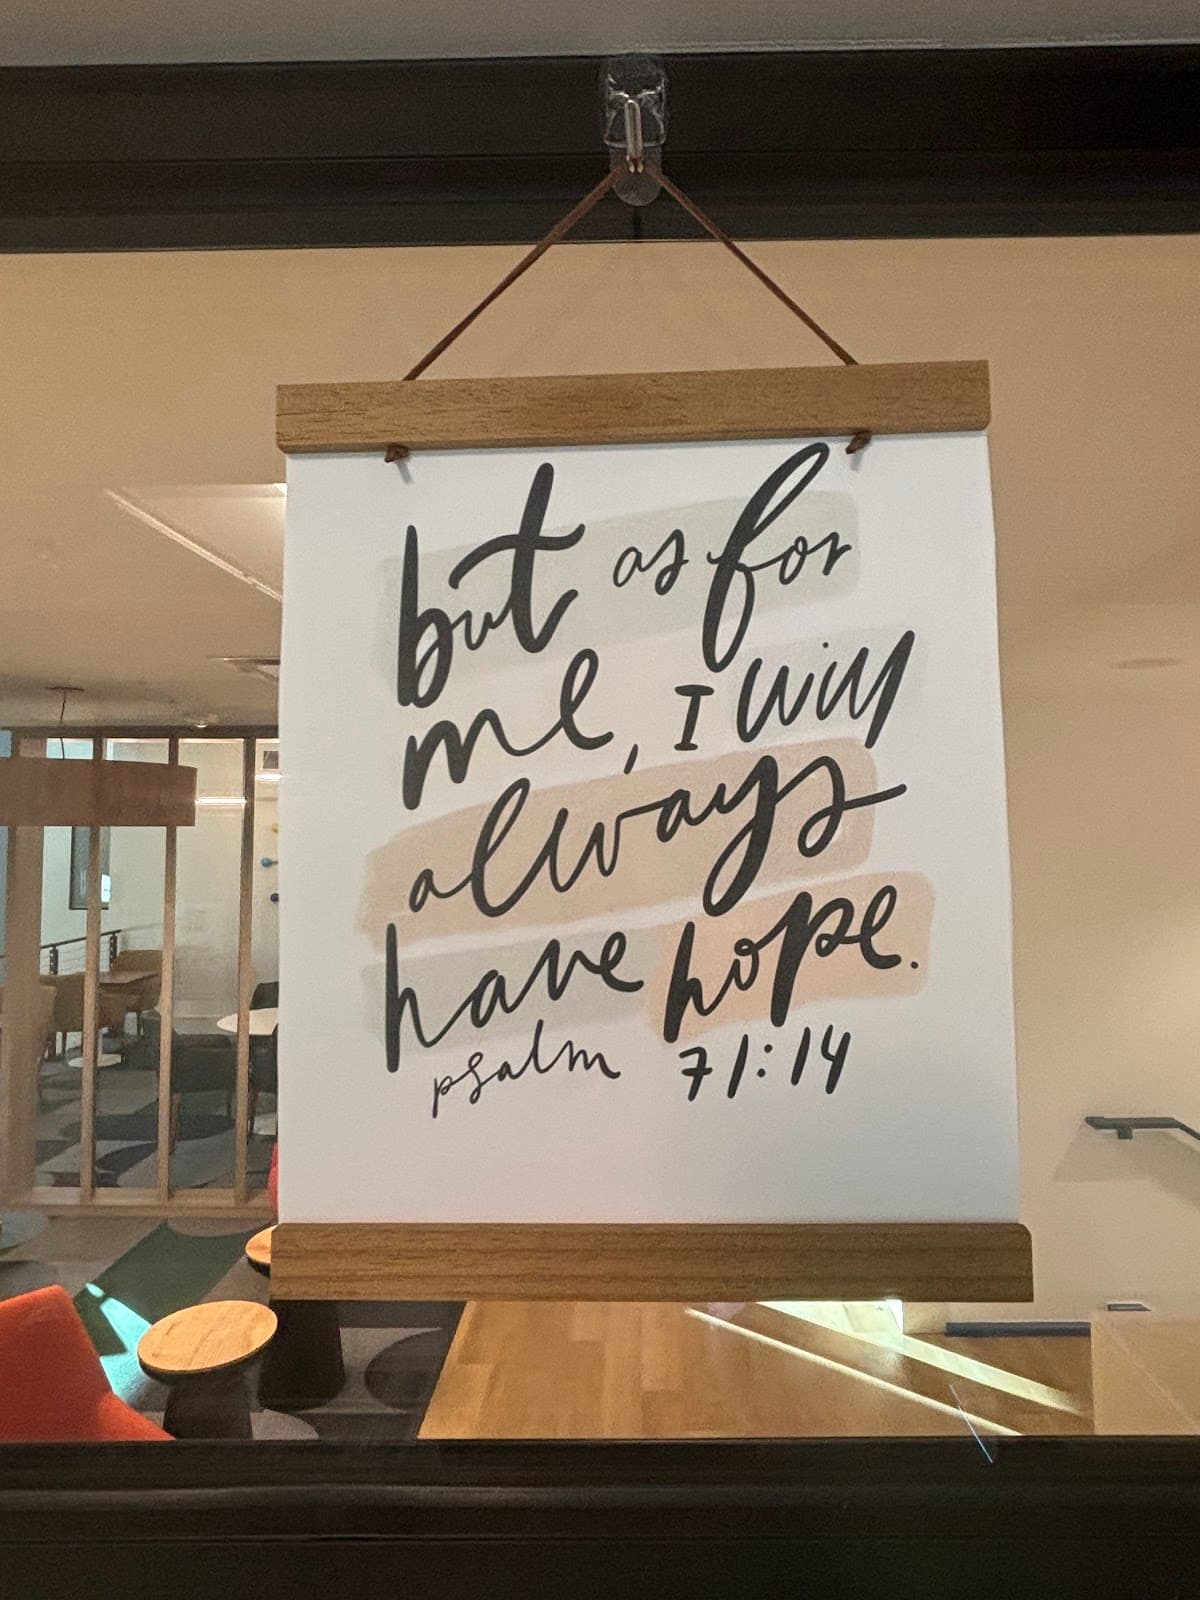 but as for
me, I will
always
have hope.
psalm 71:14